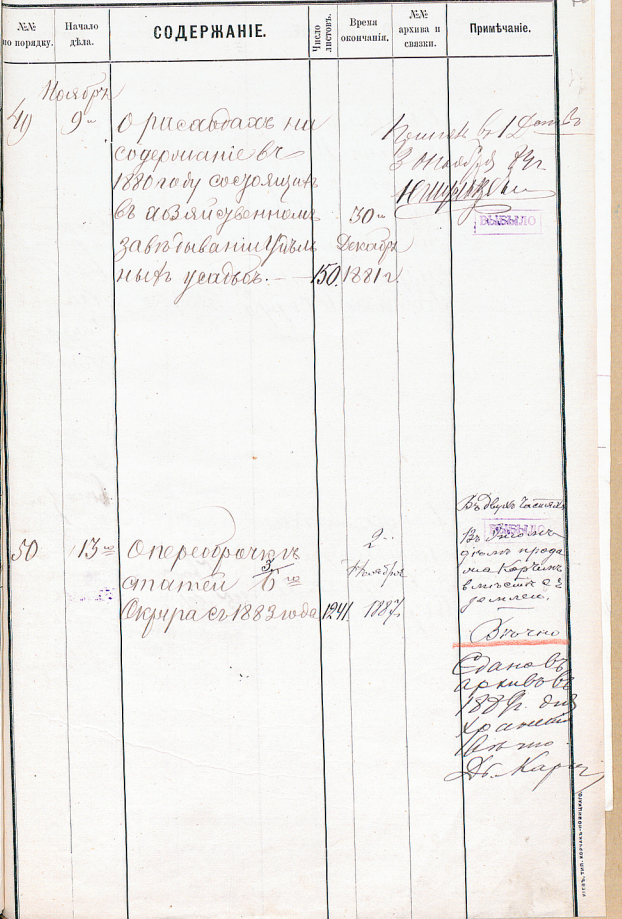 №№ по порядку.
Начало дѣла.
СОДЕРЖАНІЕ.
Число листовъ.
Время окончанія.
№№ архива и связки.
Примѣчаніе.
Ноябрь
49
9го
О расходахъ на
содержаніе въ
1880 году состоящихъ
въ хозяйственномъ
завѣдываніи Удѣль
ныхъ усадьбъ.
150.
30го
Декабря
1881 г.
3 октября 89 г.
ВЫБЫЛО
50
13го
О переоброчкѣ
статей 3/6го
Округа съ 1883 года
1241.
2
Ноября
1887
Въ двухъ частяхъ
ВЫБЫЛО
Въ
дѣлѣ прода
жа
вмѣстѣ съ
землей.
Вѣчно
Сдано въ
архивъ въ
1889 г. для
храненія
КІЕВЪ, ТИП. КОРЧАКЪ-НОВИЦКАГО.